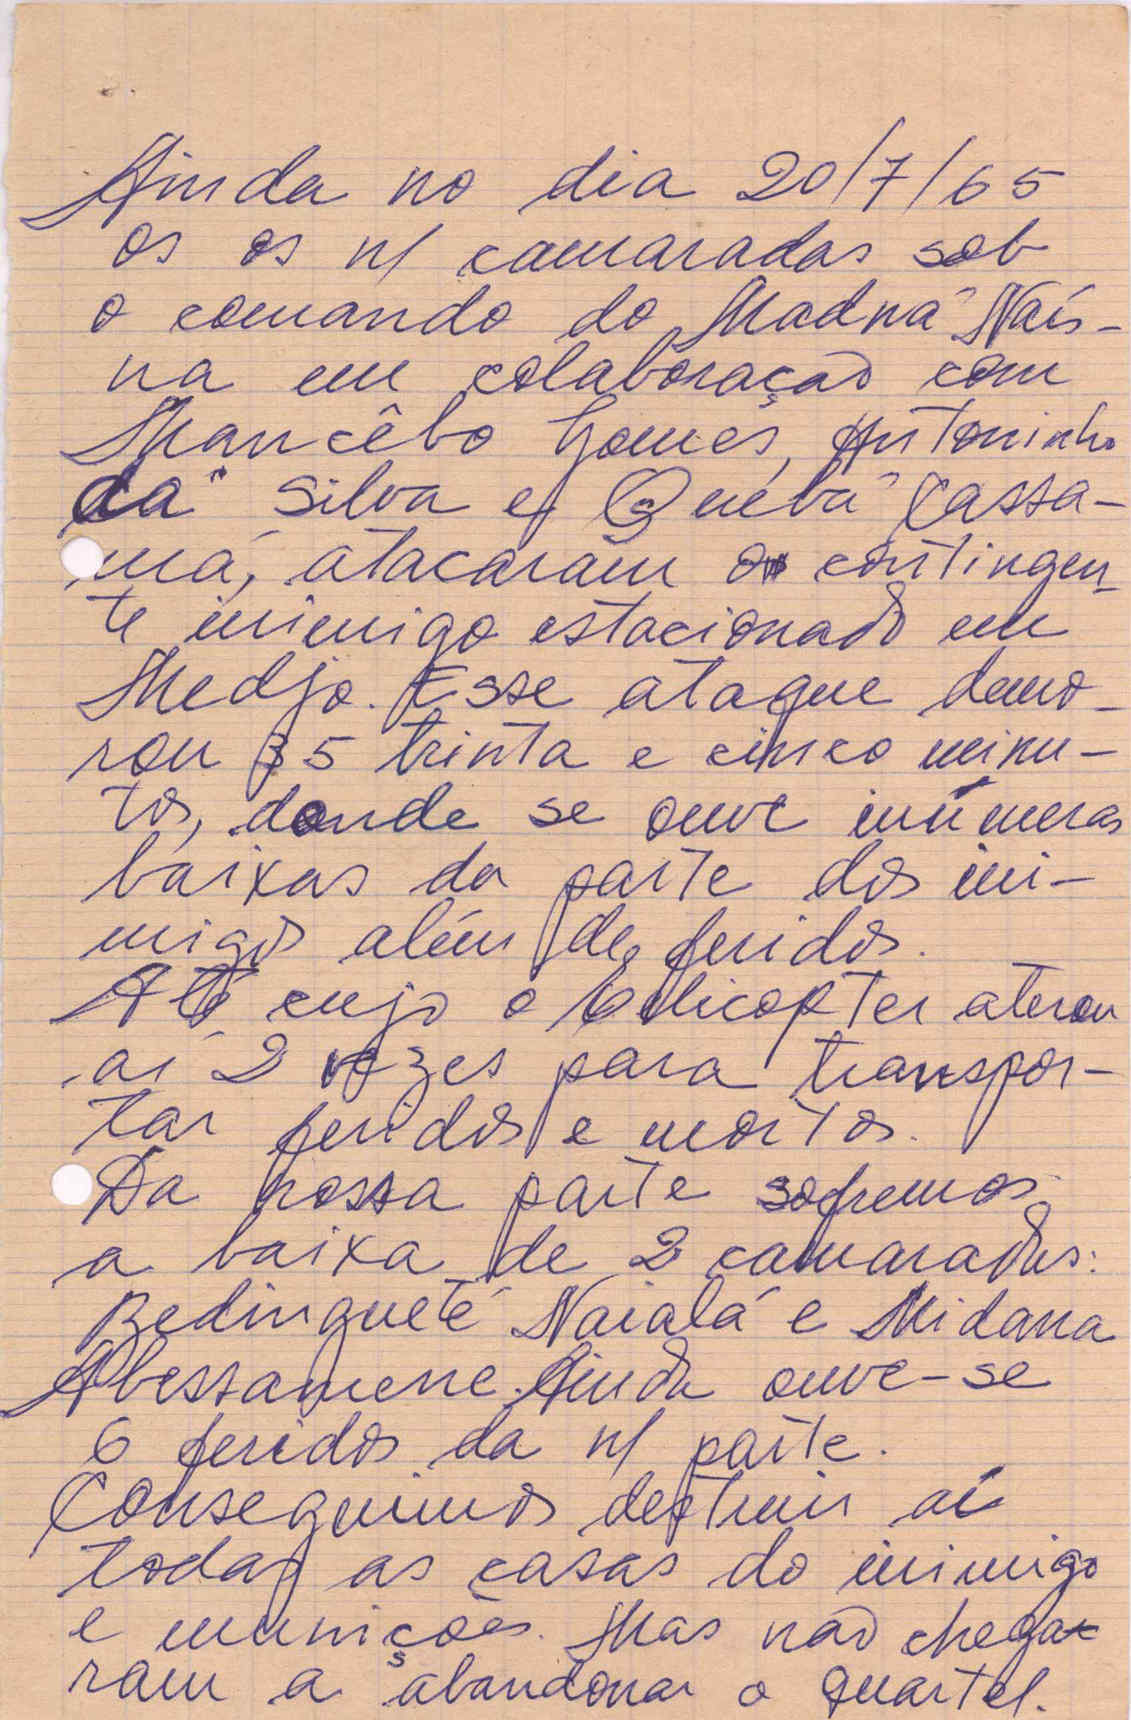 Ainda no dia 20/7/65
os os n/ camaradas sob
o comando do Madna Nais-
na em colaboração com
Mancêbo Gomes, Antoninho
da Silva e Quebá Cassa-
má, atacaram o contingen-
te inimigo estacionado em
Medjo. Esse ataque demo-
rou 35 trinta e cinco minu-
tos, donde se ouve inúmeras
baixas da parte dos ini-
migos além de feridos.
Até cujo o helicopter aterou
aí 2 vezes para transpor-
tar feridos e mortos.
Da nossa parte sofremos
a baixa de 2 camaradas:
Bedingueté Naialá e Midana
Abessamene. Ainda ouve-se
6 feridos da n/ parte.
Conseguimos destruir aí
todas as casas do inimigo
e munições. Mas não chega-
ram a abandonar o quartel.